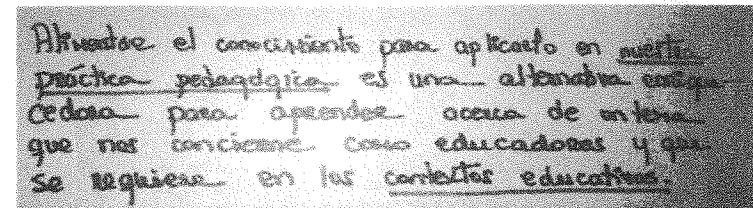 Alimentar el conocimiento para aplicarlo en nuestra
práctica pedagógica es una alternativa enrique-
cedora para aprender acerca de un tema
que nos concierne como educadoras y que
se requiere en los contextos educativos.